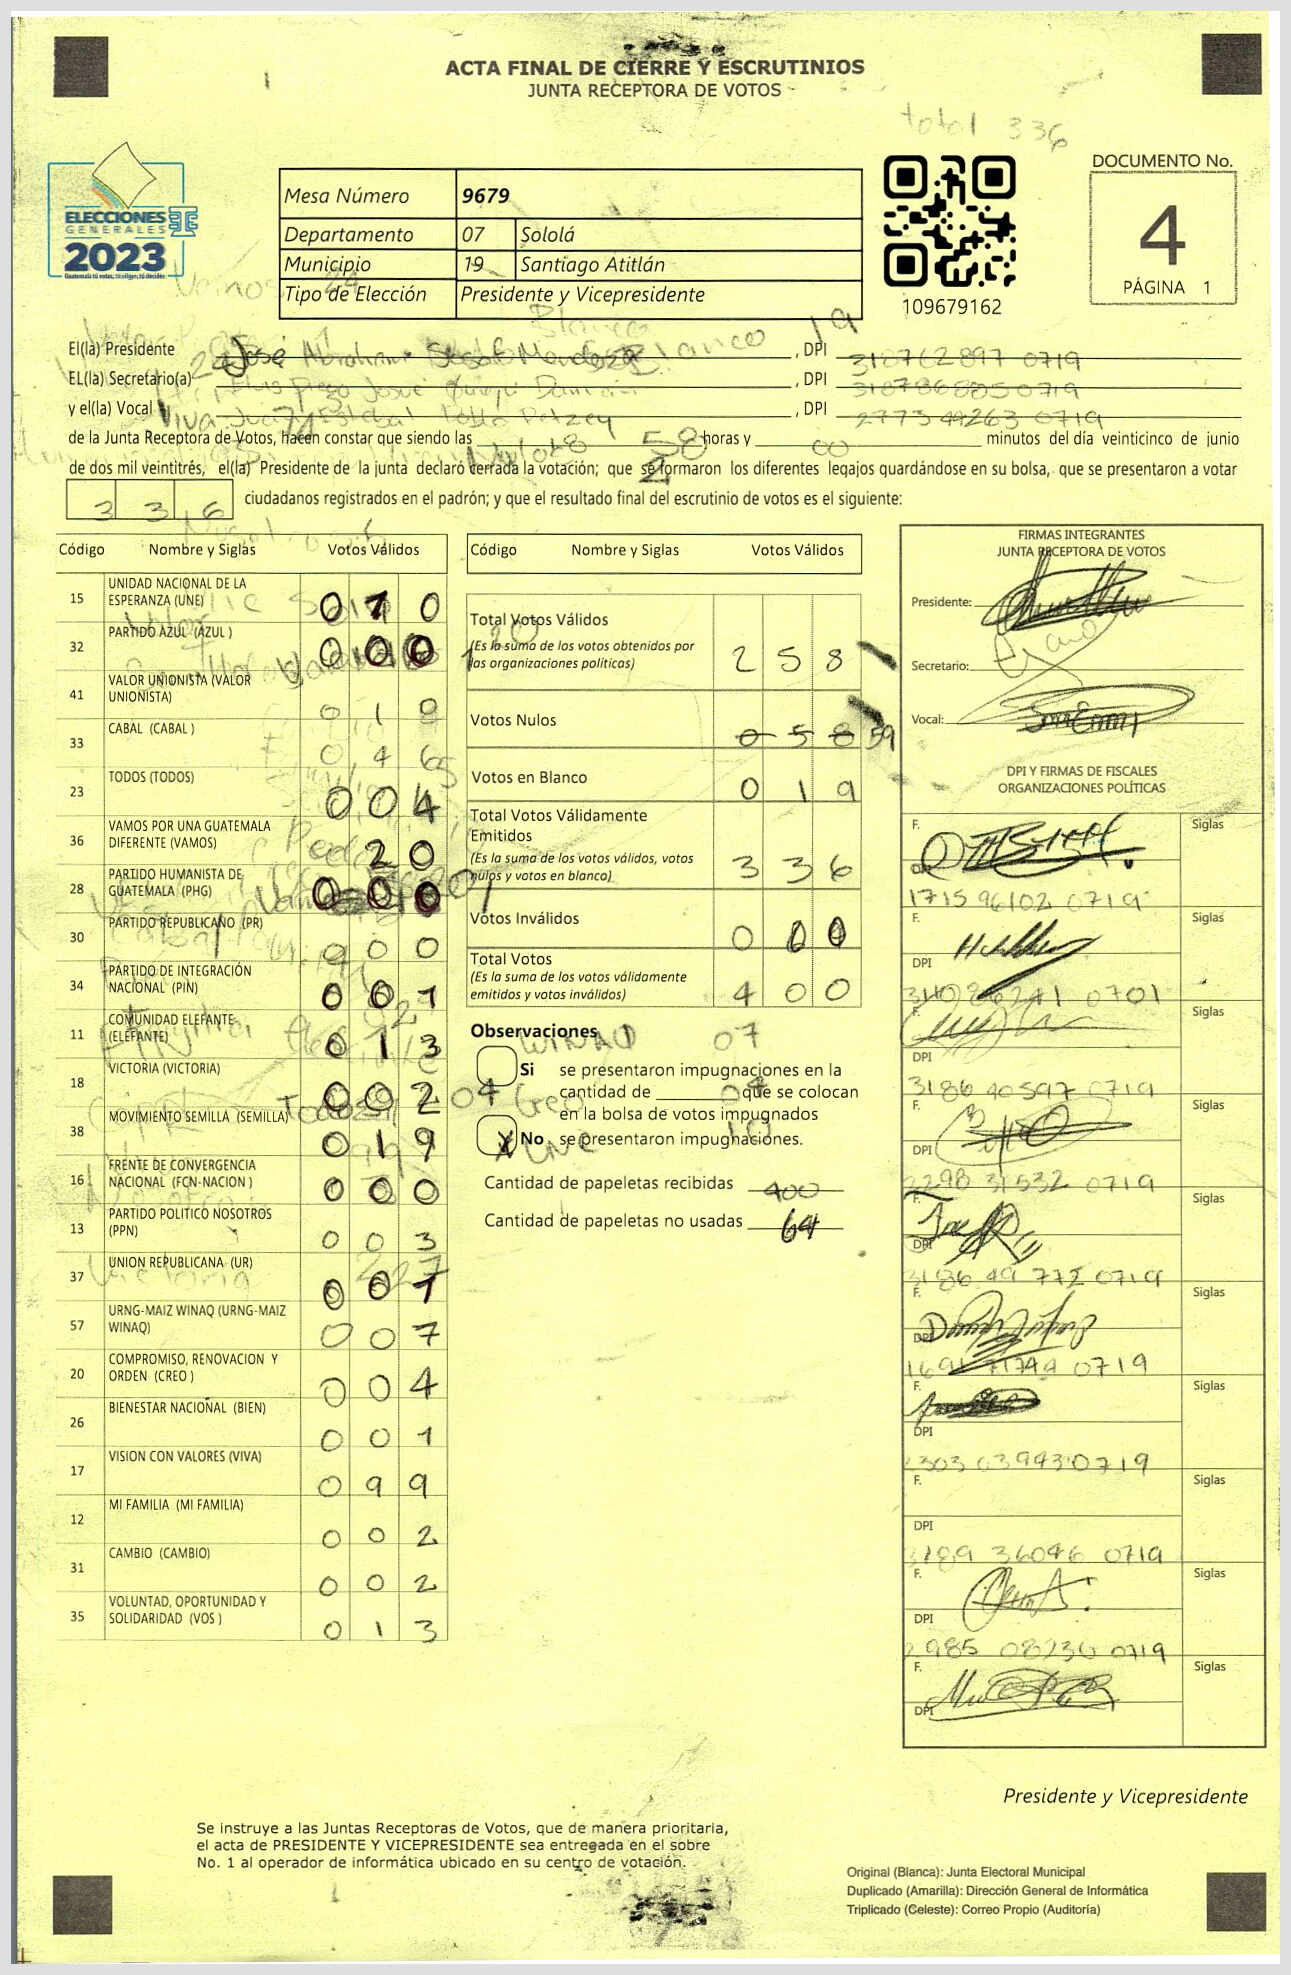 ACTA FINAL DE CIERRE Y ESCRUTINIOS
JUNTA RECEPTORA DE VOTOS
total 336
ELECCIONES
GENERALES
2023
Guatemala tú votas, tú eliges, tú decides
Mesa Número 9679
Departamento 07 Sololá
Municipio 19 Santiago Atitlán
Tipo de Elección Presidente y Vicepresidente
109679162
DOCUMENTO No.
4
PÁGINA 1
Blanco 19
El(la) Presidente José Abraham Mendoza , DPI 318762897 0719
EL(la) Secretario(a) Diego Josué Damián , DPI 318786885 0719
y el(la) Vocal Juan Esteban Pablo Petzey , DPI 277349263 0719
de la Junta Receptora de Votos, hacen constar que siendo las horas y 00 minutos del día veinticinco de junio
de dos mil veintitrés, el(la) Presidente de la junta declaró cerrada la votación; que se formaron los diferentes legajos quardándose en su bolsa, que se presentaron a votar
336 ciudadanos registrados en el padrón; y que el resultado final del escrutinio de votos es el siguiente:
Código Nombre y Siglas Votos Válidos
15 UNIDAD NACIONAL DE LA ESPERANZA (UNE) 0 1 0
32 PARTIDO AZUL (AZUL ) 0 0 0
41 VALOR UNIONISTA (VALOR UNIONISTA) 0 1
33 CABAL (CABAL ) 0 4
23 TODOS (TODOS) 0 0 4
36 VAMOS POR UNA GUATEMALA DIFERENTE (VAMOS) 2 0
28 PARTIDO HUMANISTA DE GUATEMALA (PHG) 0 0 0
30 PARTIDO REPUBLICANO (PR) 0 0 0
34 PARTIDO DE INTEGRACIÓN NACIONAL (PIN) 0 0 1
11 COMUNIDAD ELEFANTE (ELEFANTE) 0 1 3
18 VICTORIA (VICTORIA) 0 0 2
38 MOVIMIENTO SEMILLA (SEMILLA) 0 1 9
16 FRENTE DE CONVERGENCIA NACIONAL (FCN-NACION ) 0 0 0
13 PARTIDO POLITICO NOSOTROS (PPN) 0 0 3
37 UNION REPUBLICANA (UR) 0 0 1
57 URNG-MAIZ WINAQ (URNG-MAIZ WINAQ) 0 0 7
20 COMPROMISO, RENOVACION Y ORDEN (CREO ) 0 0 4
26 BIENESTAR NACIONAL (BIEN) 0 0 1
17 VISION CON VALORES (VIVA) 0 9 9
12 MI FAMILIA (MI FAMILIA) 0 0 2
31 CAMBIO (CAMBIO) 0 0 2
35 VOLUNTAD, OPORTUNIDAD Y SOLIDARIDAD (VOS ) 0 1 3
Código Nombre y Siglas Votos Válidos
Total Votos Válidos
(Es la suma de los votos obtenidos por las organizaciones políticas) 2 5 8
Votos Nulos 0 5 8 59
Votos en Blanco 0 1 9
Total Votos Válidamente Emitidos
(Es la suma de los votos válidos, votos nulos y votos en blanco) 3 3 6
Votos Inválidos 0 0 0
Total Votos
(Es la suma de los votos válidamente emitidos y votos inválidos) 4 0 0
Observaciones
WINAQ 07
Si se presentaron impugnaciones en la
cantidad de que se colocan
04 Creo
en la bolsa de votos impugnados
X No se presentaron impugnaciones.
Cantidad de papeletas recibidas 400
Cantidad de papeletas no usadas 64
FIRMAS INTEGRANTES
JUNTA RECEPTORA DE VOTOS
Presidente:
Secretario:
Vocal:
DPI Y FIRMAS DE FISCALES
ORGANIZACIONES POLÍTICAS
F. Siglas
1715 96102 0719
F. Siglas
DPI
3140 86241 0701
F. Siglas
DPI
3186 40597 0719
F. Siglas
DPI
2298 31532 0719
F. Siglas
DPI
3186 49 772 0719
F. Siglas
DPI
1691 71749 0719
F. Siglas
DPI
2303 03943 0719
F. Siglas
DPI
3189 36046 0719
F. Siglas
DPI
2985 08236 0719
F. Siglas
DPI
Presidente y Vicepresidente
Se instruye a las Juntas Receptoras de Votos, que de manera prioritaria,
el acta de PRESIDENTE Y VICEPRESIDENTE sea entregada en el sobre
No. 1 al operador de informática ubicado en su centro de votación.
Original (Blanca): Junta Electoral Municipal
Duplicado (Amarilla): Dirección General de Informática
Triplicado (Celeste): Correo Propio (Auditoría)